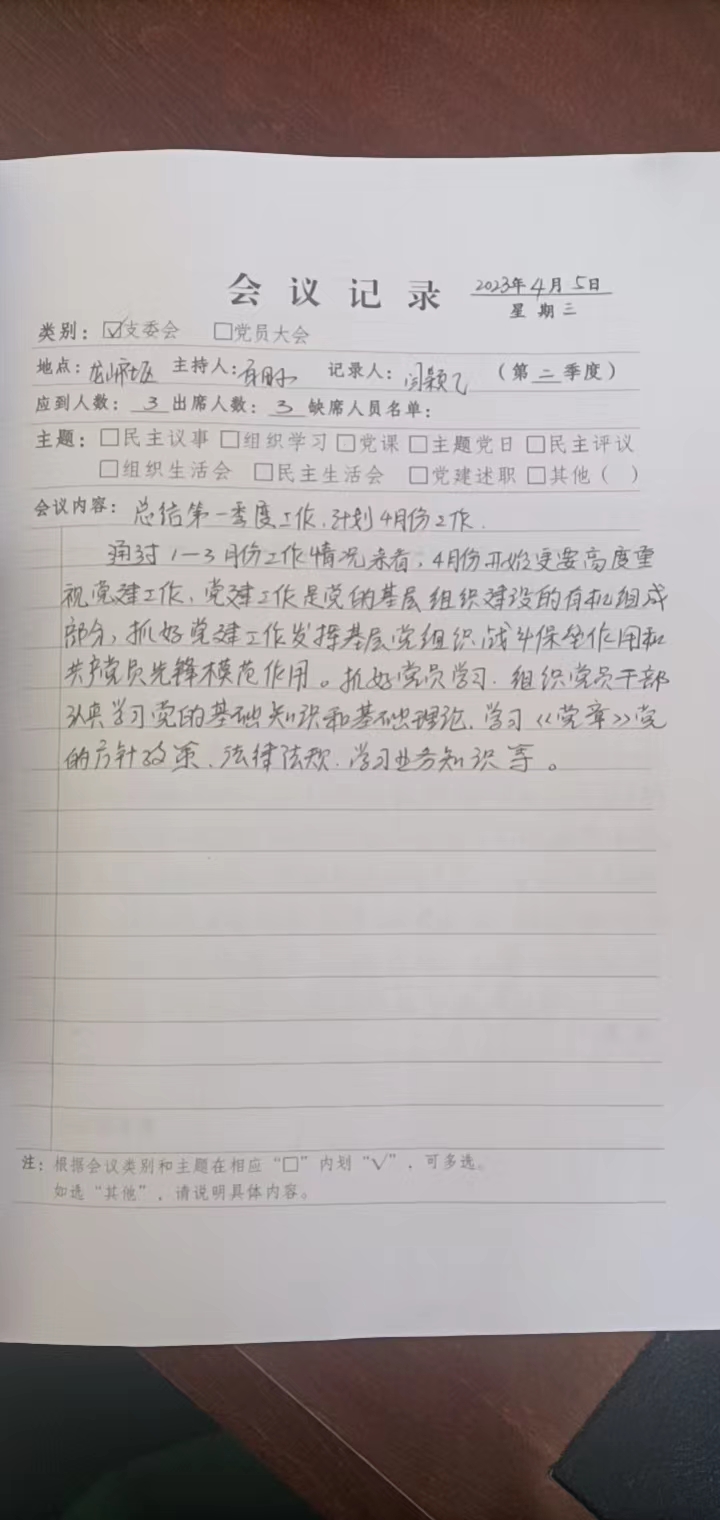 会议记录 2023年4月5日
星期三
类别：☑支委会 □党员大会
地点：龙山社区 主持人： 记录人：闫颖飞 （第二季度）
应到人数：3 出席人数：3 缺席人员名单：
主题：□民主议事 □组织学习 □党课 □主题党日 □民主评议
□组织生活会 □民主生活会 □党建述职 □其他（ ）
会议内容：总结第一季度工作、计划4月份工作.
通过1-3月份工作情况来看，4月份开始更要高度重
视党建工作、党建工作是党的基层组织建设的有机组成
部分，抓好党建工作发挥基层党组织战斗保垒作用和
共产党员先锋模范作用。抓好党员学习.组织党员干部
认真学习党的基础知识和基础理论、学习《党章》党
的方针政策、法律法规.学习业务知识等。
注：根据会议类别和主题在相应“□”内划“√”，可多选。
如选“其他”，请说明具体内容。